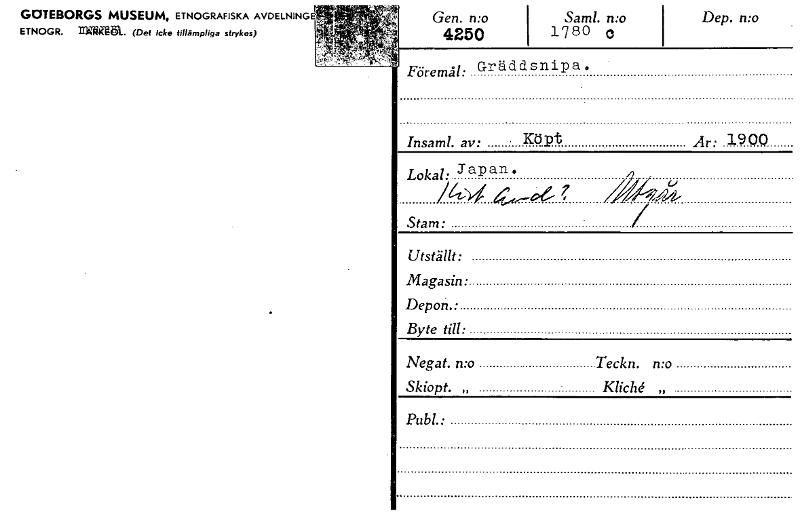 GÖTEBORGS MUSEUM, ETNOGRAFISKA AVDELNINGE
ETNOGR. ARKEOL. (Det icke tillämpliga strykes)
Gen. n:o Saml. n:o Dep. n:o
4250 1780 c
Föremål: Gräddsnipa.
Insaml. av: Köpt År: 1900
Lokal: Japan.
Hist Avd? Utgår
Stam:
Utställt:
Magasin:
Depon.:
Byte till:
Negat. n:o Teckn. n:o
Skiopt. „ Kliché „
Publ.: